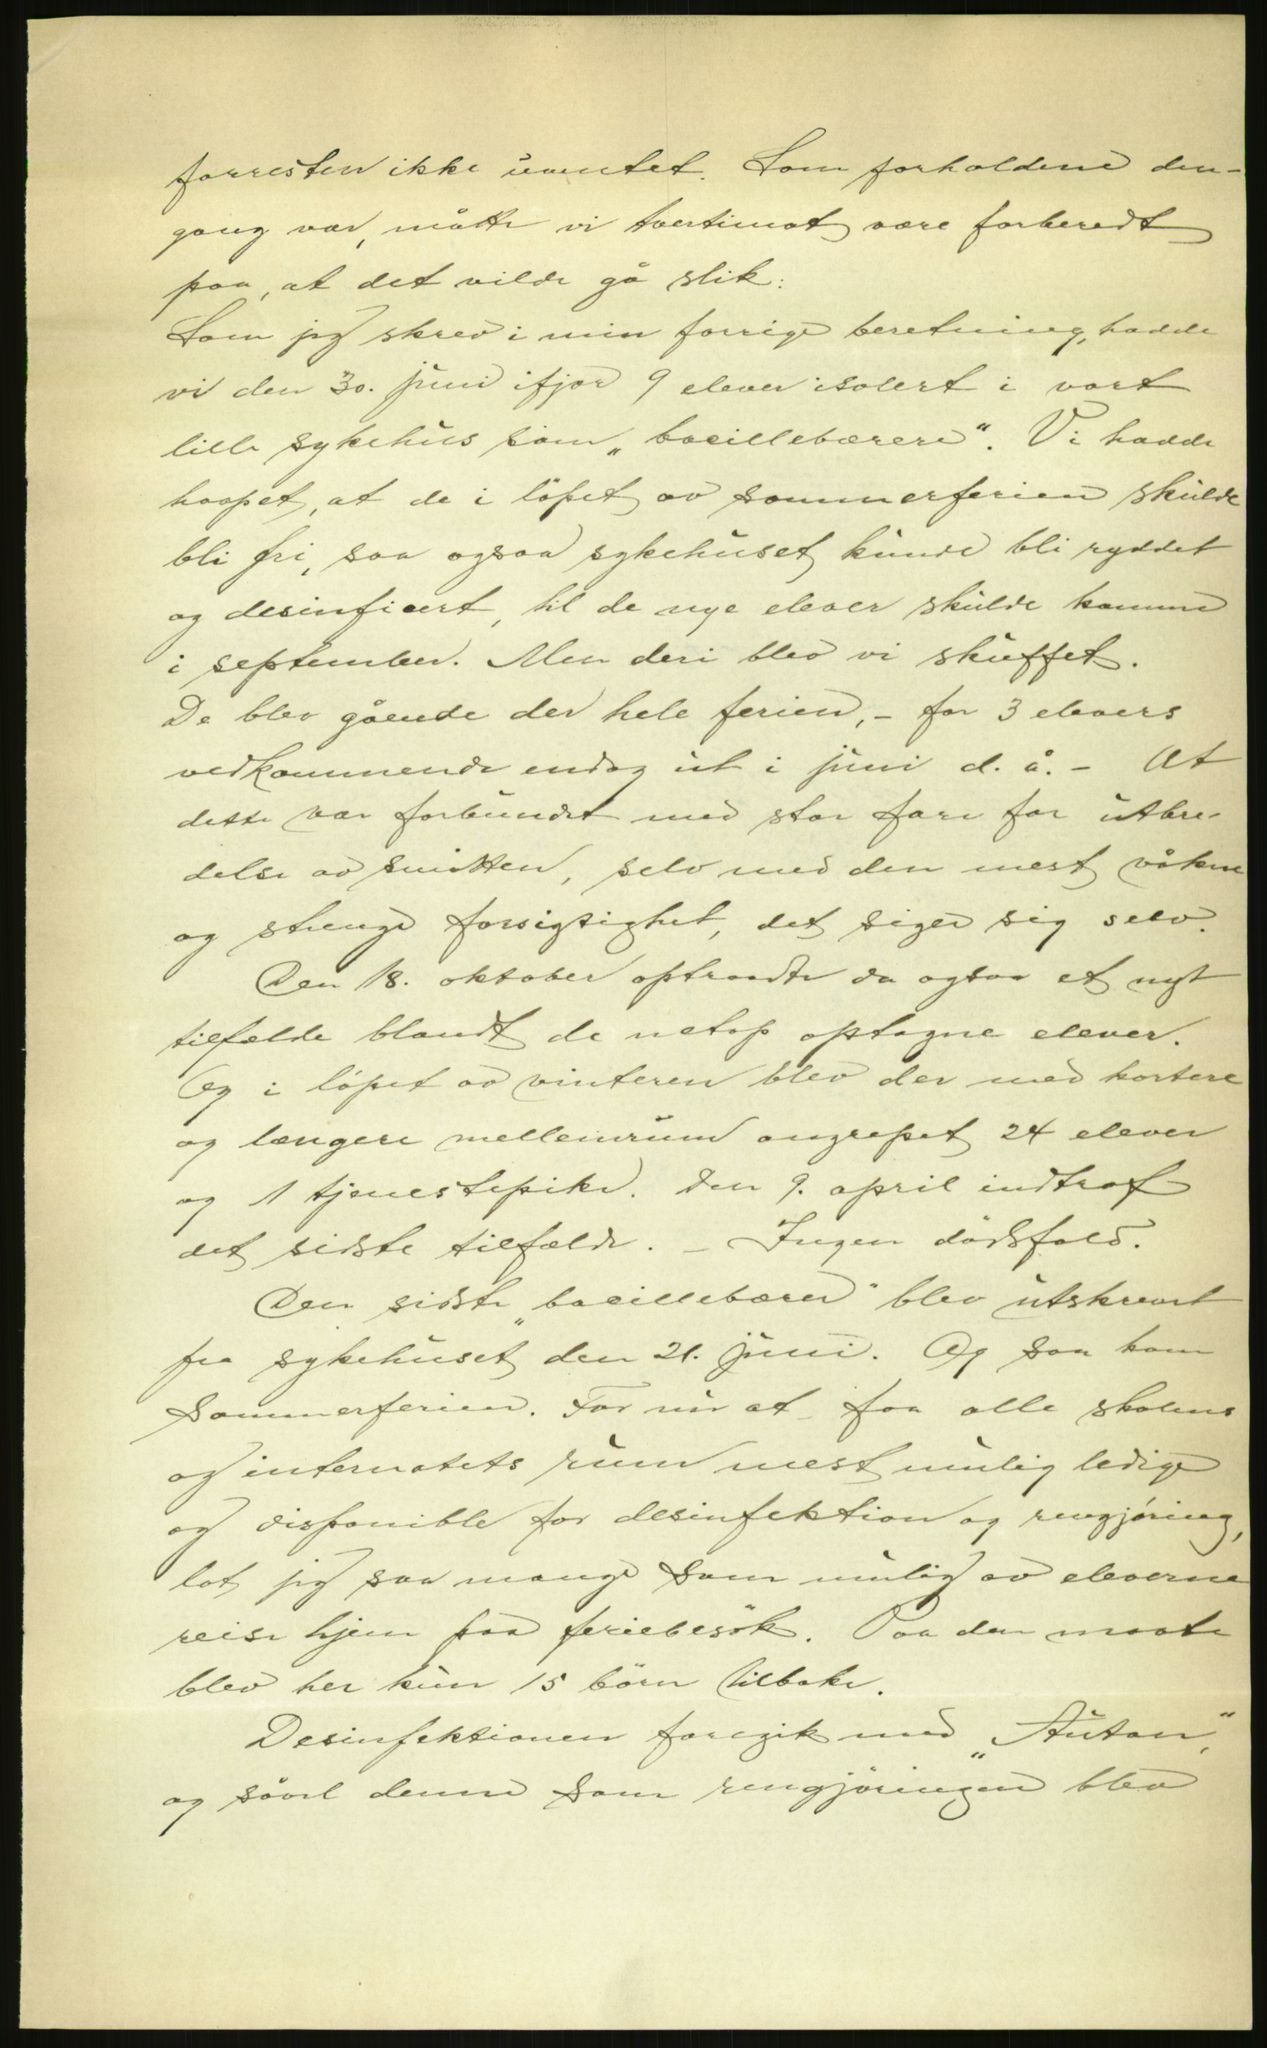 forresten ikke uventet. Som forholdene den-
gang var, måtte vi tvertimot være forberedt
paa, at det vilde gå slik:
Som jeg skrev i min forrige beretning, hadde
vi den 30. juni ifjor 9 elever isolert i vort
lille sykehus som „bacillebærere“. Vi hadde
haapet, at de i löpet av sommerferien skulde
bli fri, saa ogsaa sykehuset kunde bli ryddet
og desinficert, til de nye elever skulde komme
i september. Men deri blev vi skuffet.
De blev gående der hele ferien, – for 3 elevers
vedkommende endog ut i juni d. å. – At
dette var forbundet med stor fare for utbre-
delse av smitten, selv med den mest våkne
og strenge forsigtighet, det siger sig selv.
Den 18. oktober optraadte da ogsaa et nyt
tilfælde blandt de netop optagne elever.
Og i löpet av vinteren blev der med kortere
og længere mellemrum angrepet 24 elever
og 1 tjenestepike. Den 9. april indtraf
det sidste tilfælde. – Ingen dödsfald.
Den sidste „bacillebærer“ blev utskrevet
fra sykehuset den 21. juni. Og saa kom
sommerferien. For nu at faa alle skolens
og internatets rum mest mulig ledige
og disponible for desinfektion og rengjöring,
lot jeg saa mange som mulig av eleverne
reise hjem paa feriebesök. Paa den maate
blev her kun 15 börn tilbake.
Desinfektionen foregik med „Autan“,
og såvel denne som rengjöringen blev